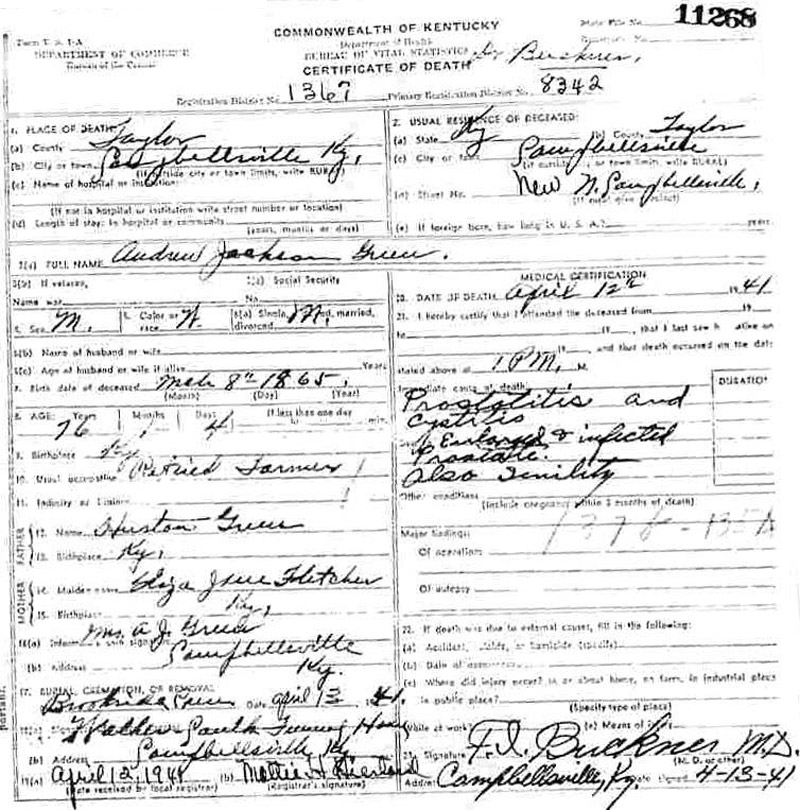 11268
COMMONWEALTH OF KENTUCKY
Form V. S. 1-A
State File No.
DEPARTMENT OF COMMERCE
Department of Health
Bureau of the Census
BUREAU OF VITAL STATISTICS
Dr Buckner,
CERTIFICATE OF DEATH
Registration District No. 1367 Primary Registration District No. 8342
1. PLACE OF DEATH:
(a) County Taylor
(b) City or town Campbellsville Ky,
(If outside city or town limits, write RURAL)
(c) Name of hospital or institution:
(If not in hospital or institution write street number or location)
(d) Length of stay: In hospital or community
(years, months or days)
2. USUAL RESIDENCE OF DECEASED:
(a) State Ky (b) County Taylor
(c) City or town Campbellsville
(If outside city or town limits, write RURAL)
(d) Street No. New N. Campbellsville,
(If rural give precinct)
(e) If foreign born, how long in U. S. A.? years.
3(a) FULL NAME Andrew Jackson Green.
3(b) If veteran,
Name war
3(c) Social Security
No.
4. Sex M. 5. Color or race W 6(a) Single, married, divorced M.
6(b) Name of husband or wife
6(c) Age of husband or wife if alive Years
7. Birth date of deceased Mch 8th 1865.
(Month) (Day) (Year)
8. AGE: Years Months Days If less than one day
76 1 4 min.
9. Birthplace Ky
10. Usual occupation Retired Farmer
11. Industry or business
FATHER
12. Name Huston Green
13. Birthplace Ky,
MOTHER
14. Maiden name Eliza Jane Fletcher
15. Birthplace Ky,
16(a) Informant's own signature Mrs. A. J. Green
(b) Address Campbellsville Ky.
17. BURIAL, CREMATION, OR REMOVAL
Brookside Cem Date April 13 41.
18(a) Funeral Home
(b) Address Campbellsville Ky
19(a) April 12, 1941 (b) Mattie H.
(Date received by local registrar) (Registrar's signature)
MEDICAL CERTIFICATION
20. DATE OF DEATH April 12th 1941
21. I hereby certify that I attended the deceased from 19
to 19, that I last saw h alive on
19, and that death occurred on the date
stated above at 1 P.M. M.
Immediate cause of death
DURATION
Prostatitis and
Cystitis
Enlarged & infected
Prostate.
Also Senility
Other conditions
(Include pregnancy within 3 months of death)
137 - 135A
Major findings:
Of operations
Of autopsy
22. If death was due to external causes, fill in the following:
(a) Accident, suicide, or homicide (specify)
(b) Date of occurrence
(c) Where did injury occur? in or about home, on farm, in industrial place
in public place?
(Specify type of place)
While at work? (e) Means of injury
23. Signature F. I. Buckner M.D.
(M. D. or other)
Address Campbellsville, Ky. Date signed 4-13-41